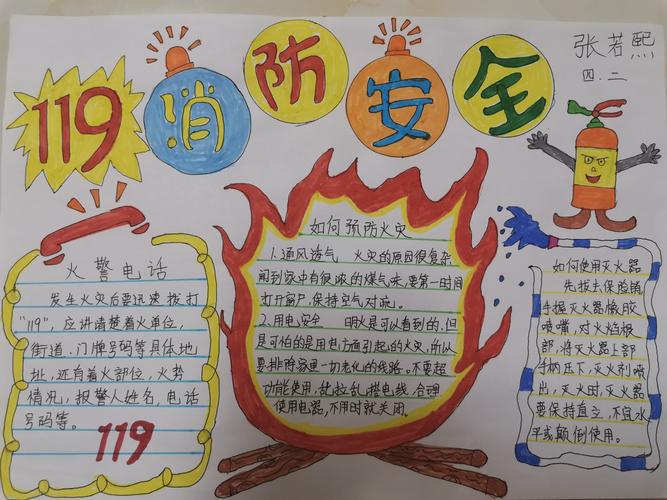 119消防安全
张若熙
四.二
火警电话
发生火灾后要迅速拨打
"119",应讲清楚着火单位,
街道、门牌号码等具体地
址,还有着火部位,火势
情况,报警人姓名,电话
号码等。
119
如何预防火灾
1.通风透气 火灾的原因很复杂
闻到家中有很浓的煤气味,要第一时间
打开窗户,保持空气对流。
2.用电安全 明火是可以看到的,但
是可怕的是用电方面引起的火灾,所以
要排除家里一切老化的线路,不要超
功能使用,乱拉乱搭电线,合理
使用电器,不用时就关闭。
如何使用灭火器
先拔去保险销
手握灭火器橡胶
喷嘴,对火焰根
部,将灭火器上部
手柄压下,灭火剂喷
出,灭火时,灭火器
要保持直立,不宜水
平或颠倒使用。